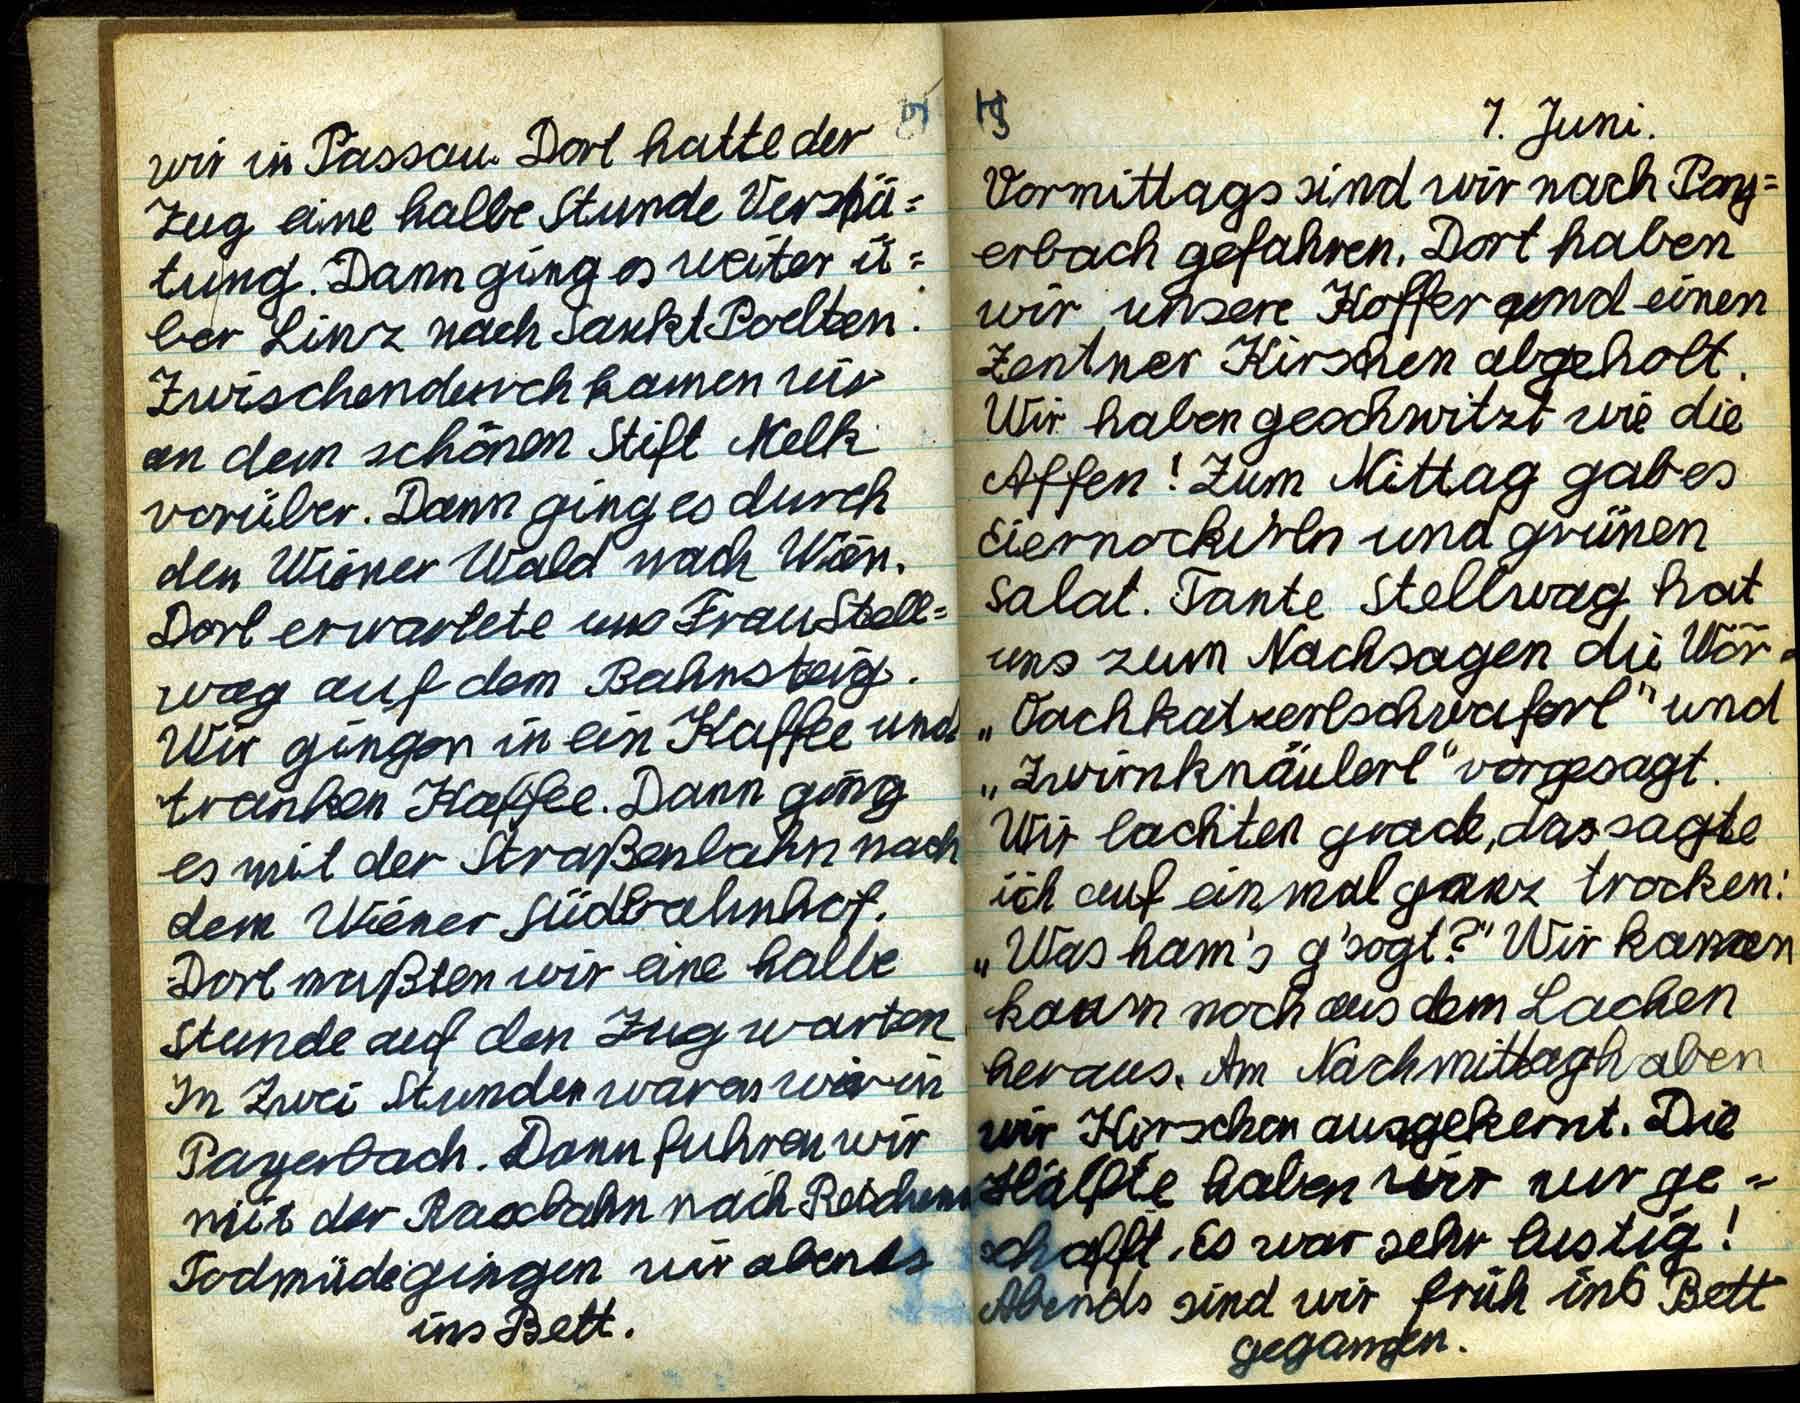 wir in Passau. Dort hatte der
Zug eine halbe Stunde Verspä=
tung. Dann ging es weiter ü=
ber Linz nach Sankt Poelten.
Zwischendurch kamen wir
an dem schönen Stift Melk
vorüber. Dann ging es durch
den Wiener Wald nach Wien.
Dort erwartete uns Frau Stell=
wag auf dem Bahnsteig.
Wir gingen in ein Kaffee und
tranken Kaffee. Dann ging
es mit der Straßenbahn nach
dem Wiener Südbahnhof.
Dort mußten wir eine halbe
Stunde auf den Zug warten
In Zwei Stunden waren wir in
Payerbach. Dann fuhren wir
mit der Raxbahn nach
Todmüde gingen wir abends
ins Bett.
7. Juni.
Vormittags sind wir nach Pay=
erbach gefahren. Dort haben
wir unsere Koffer und einen
Zentner Kirschen abgeholt.
Wir haben geschwitzt wie die
Affen! Zum Mittag gab es
Eiernockerln und grünen
Salat. Tante Stellwag hat
uns zum Nachsagen die Wör
„Oachkatzerlschwaferl" und
„Zwirnknäulerl" vorgesagt.
Wir lachten grade, da sagte
ich auf einmal ganz trocken:
„Was ham's g'sogt?" Wir kamen
kaum noch aus dem Lachen
heraus. Am Nachmittag haben
wir Kirschen ausgekernt. Die
Hälfte haben wir nur ge=
schafft. Es war sehr lustig!
Abends sind wir früh ins Bett
gegangen.